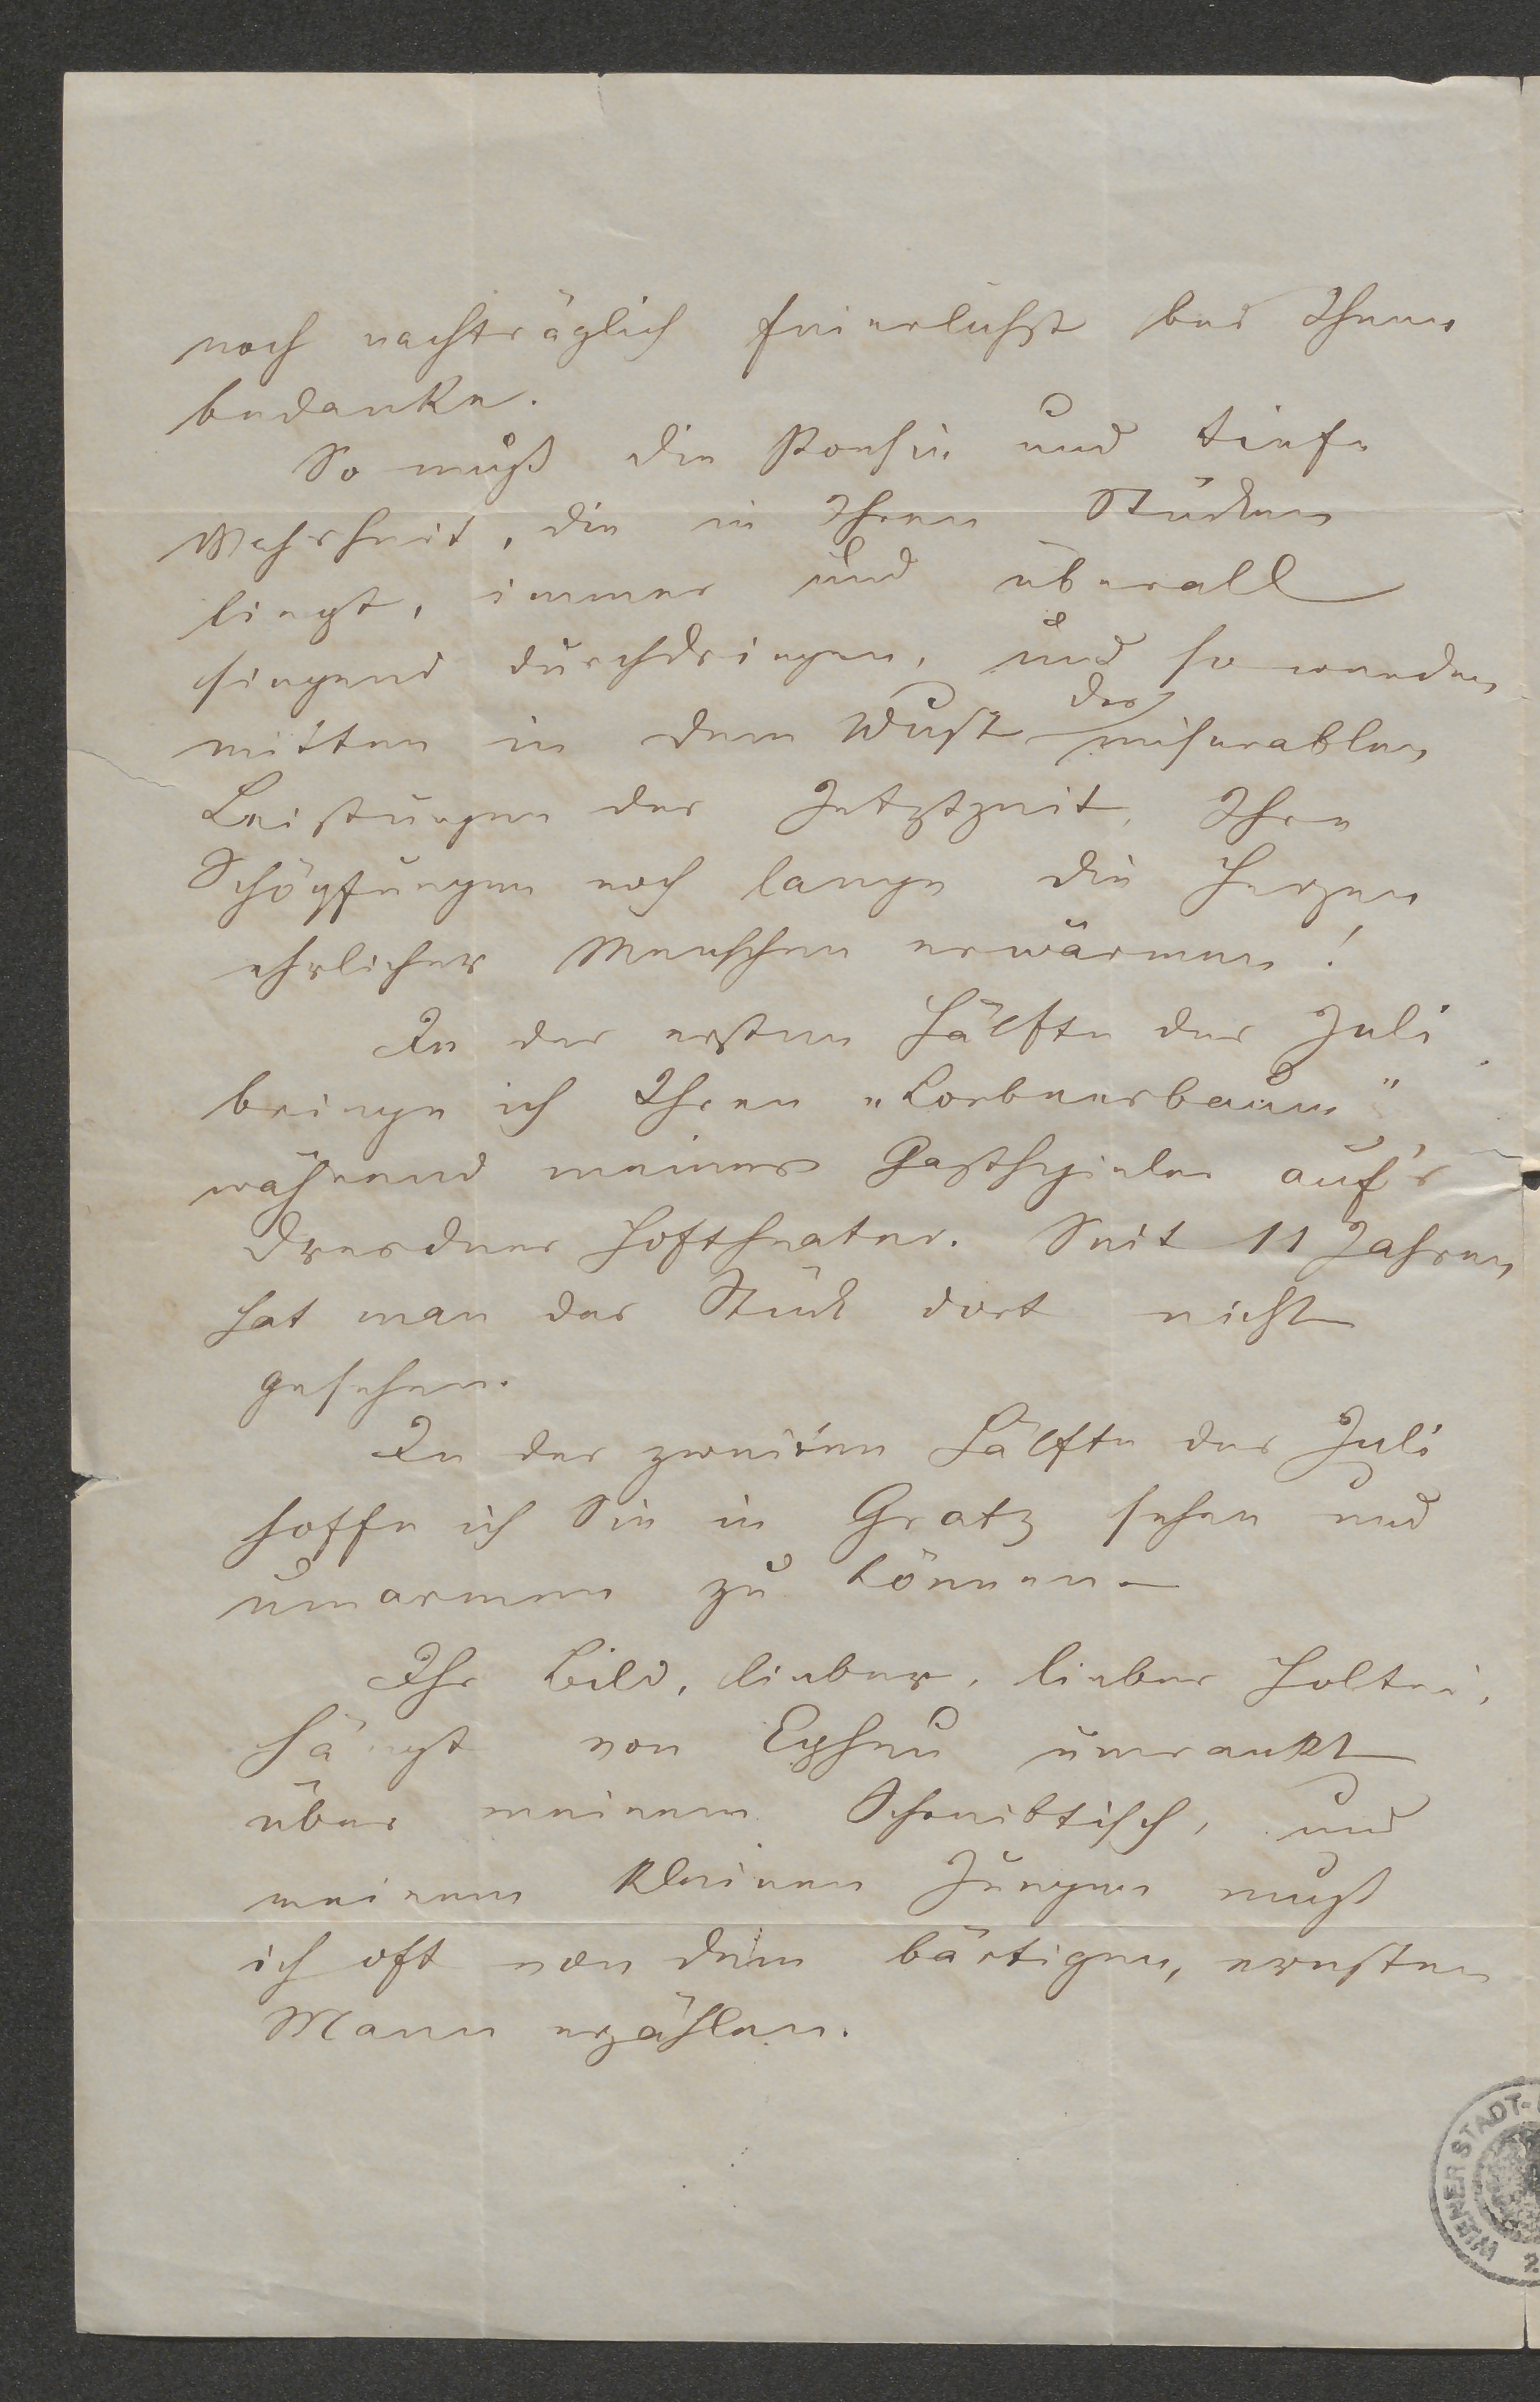 noch nachträglich feierlichst bei Ihnen
bedanke.
So muß die Poesie und tiefe
Wahrheit, die in Ihren Stücken
liegt, immer und überall
siegend durchdringen, und so werden
mitten in dem Wust der miserablen
Leistungen der Jetztzeit, Ihre
Schöpfungen noch lange die Herzen
ehrlicher Menschen erwärmen!
In der ersten Hälfte des Juli
bringe ich Ihren „Lorbeerbaum"
während meines Gastspieles auf's
Dresdner Hoftheater. Seit 11 Jahren
hat man das Stück dort nicht
gesehen.
In der zweiten Hälfte des Juli
hoffe ich Sie in Gratz sehen und
umarmen zu können –
Ihr Bild, lieber, lieber Holtei,
hängt von Epheu umrankt
über meinem Schreibtisch, und
meinem kleinen Jungen muß
ich oft von dem bärtigen, ernsten
Mann erzählen.
WIENER STADT-